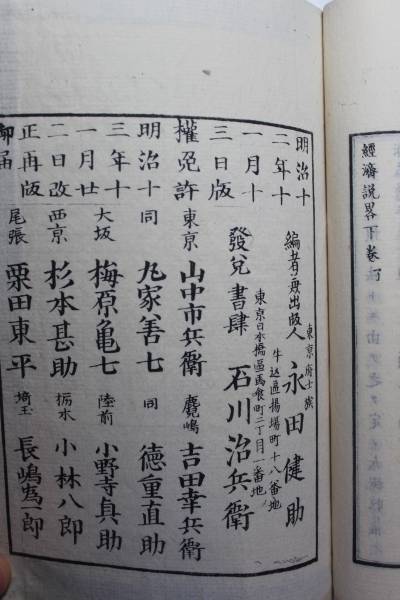 經濟説畧下卷 了
明治十
二年十
一月十
三日版
權免許
明治十
三年十
一月廿
二日改
正再版
御届
東京府士族
編者兼出版人 永田健助
牛込區揚場町十八番地
東京日本橋區馬喰町二丁目一番地
發兌書肆 石川治兵衛
東京 山中市兵衛 麑嶋 吉田幸兵衛
同 丸家善七 同 德重直助
大坂 梅原亀七 陸前 小野寺貞助
西京 杉本甚助 栃木 小林八郎
尾張 栗田東平 埼玉 長嶋為一郎